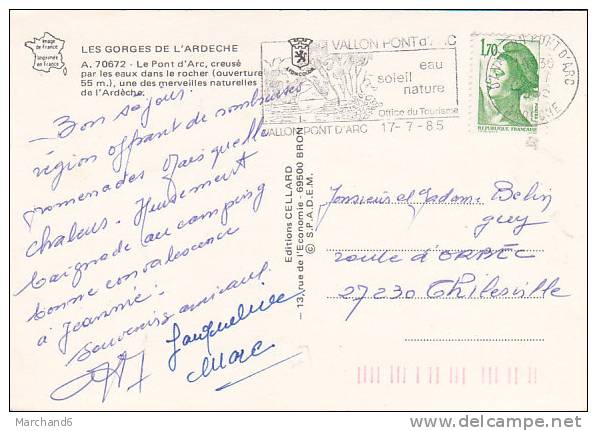 Image de France
Imprimé en France
LES GORGES DE L'ARDECHE
A. 70672 - Le Pont d'Arc, creusé
par les eaux dans le rocher (ouverture
55 m.), une des merveilles naturelles
de l'Ardèche.
VALLON PONT d'ARC
eau
soleil
nature
Office du Tourisme
VALLON PONT D'ARC 17-7-85
1,70
REPUBLIQUE FRANÇAISE
Bon séjour.
région offrant de nombreuses
promenades mais quelle
chaleur. Heureusement
baignade au camping
bonne convalescence
à Jeannie.
Souvenirs amicaux.
Jacqueline
Marc
Editions CELLARD
— 13, rue de l'Economie - 69500 BRON
© S.P.A.D.E.M.
Monsieur et Madame Belin
guy
route d'ORBEC
27230 Thiberville
Marchand6
www.delcampe.net